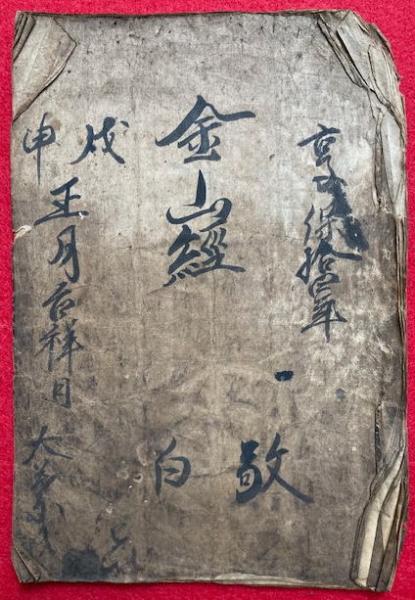 享保拾三年
金山經
敬白
戊申
正月吉祥日
大